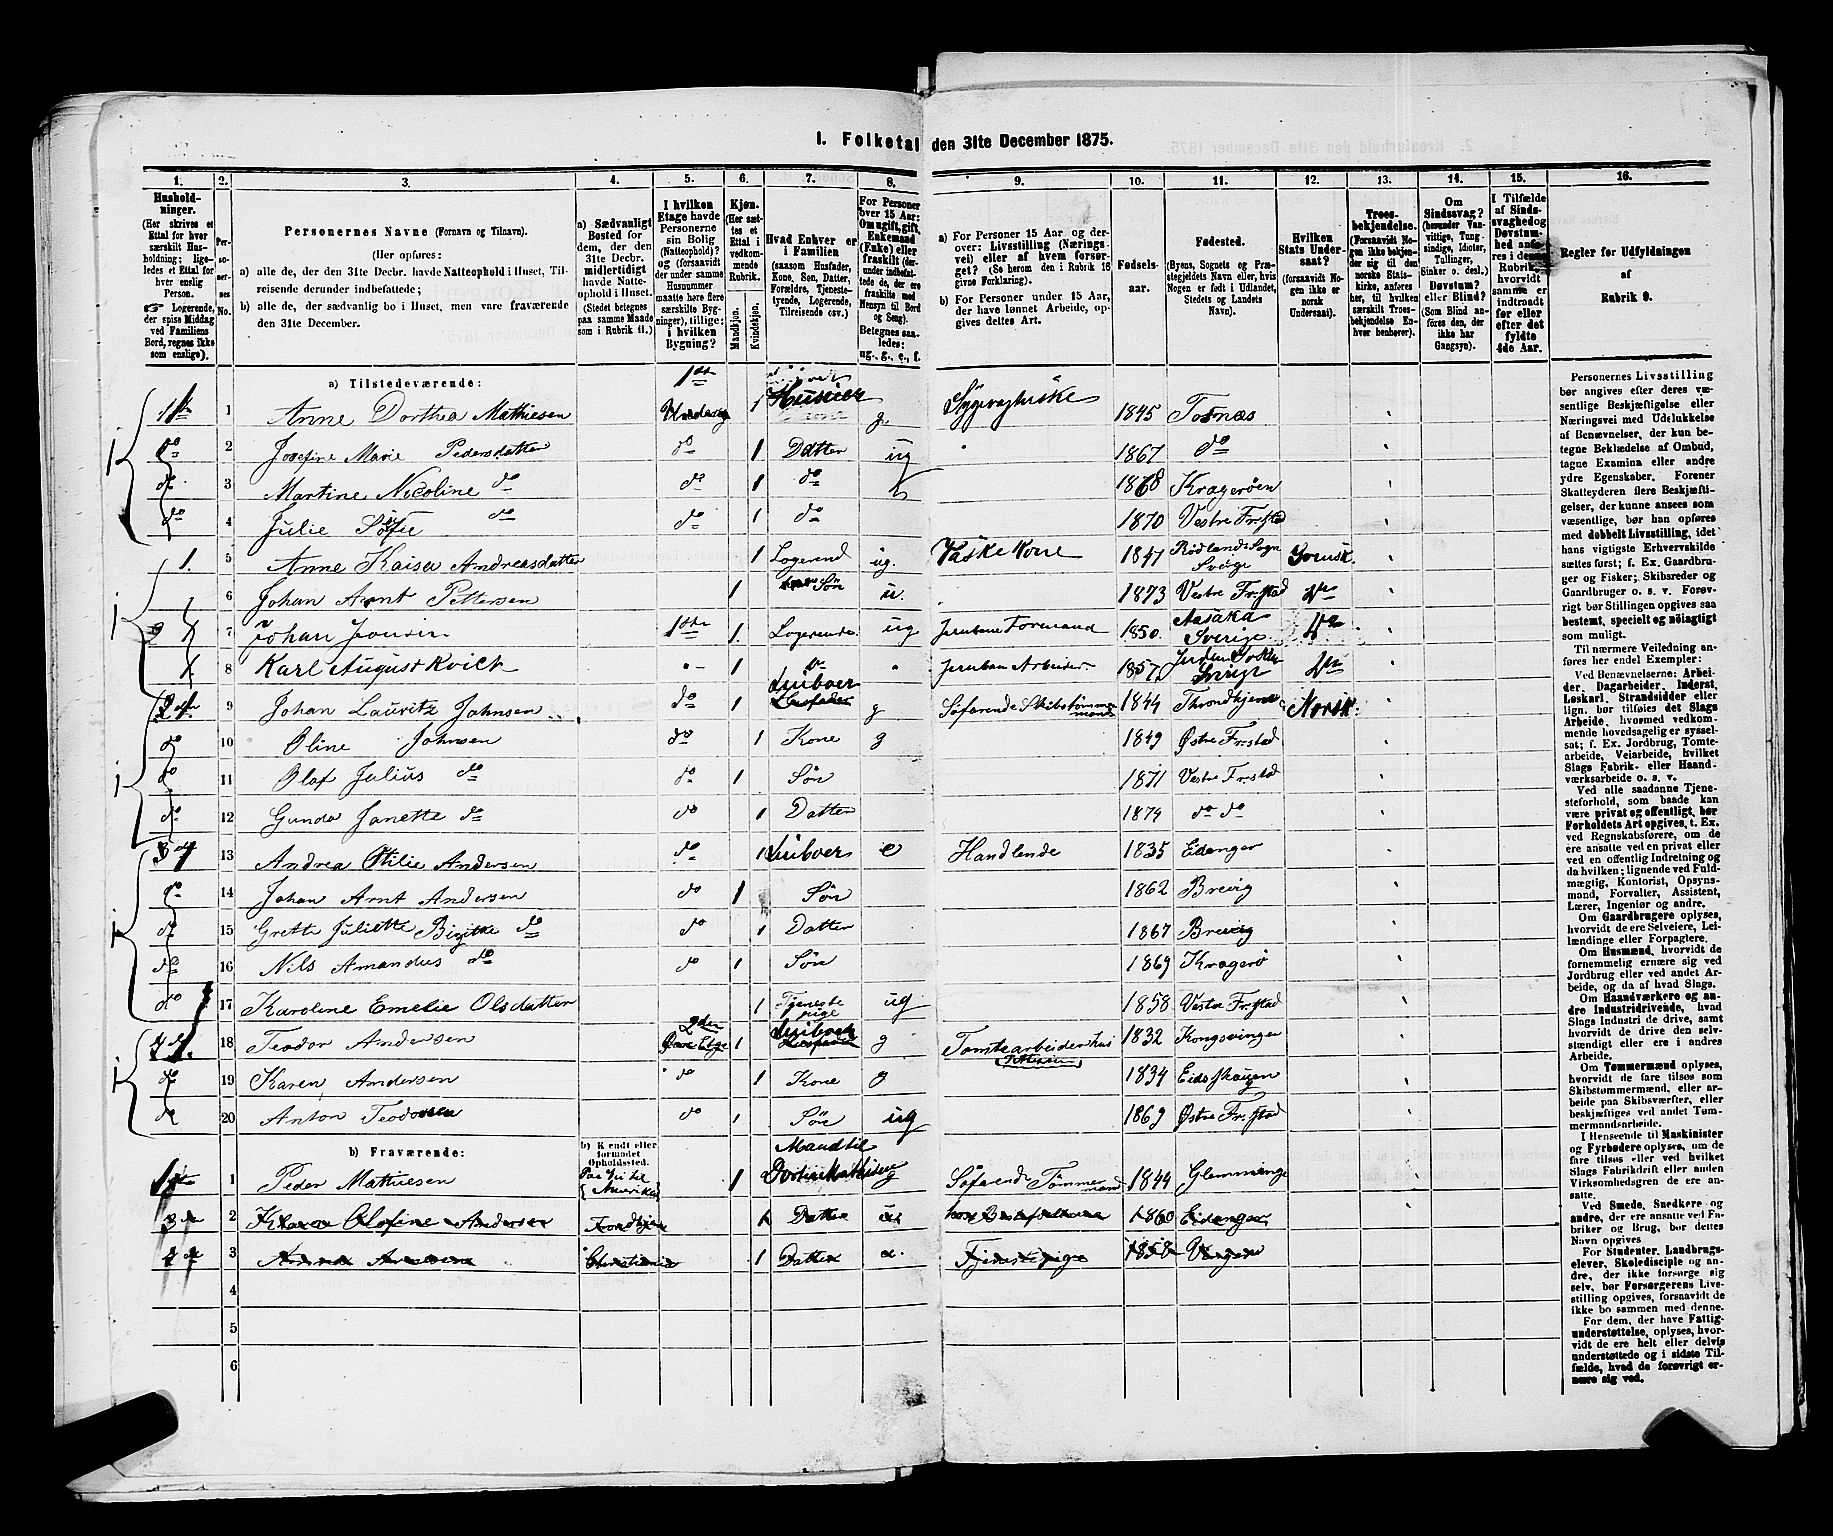 I. Folketal den 31te December 1875.
1. 2. 3. 4. 5. 6. 7. 8. 9. 10. 11. 12. 13. 14. 15. 16.
Husholdninger.
(Her skrives et Ettal for hver særskilt Husholdning; ligeledes et Ettal for hver enslig Person.
☞ Logerende, der spise Middag ved Familiens Bord, regnes ikke som enslige).
Personernes No.
Personernes Navne (Fornavn og Tilnavn).
(Her opføres:
a) alle de, der den 31te Decbr. havde Natteophold i Huset, Tilreisende derunder indbefattede;
b) alle de, der sædvanlig bo i Huset, men vare fraværende den 31te December.
a) Sædvanligt Bosted for dem, der den 31te Decbr. midlertidigt havde Natteophold i Huset.
(Stedet betegnes paa samme Maade som i Rubrik 11.)
I hvilken Etage havde Personerne sin Bolig (Natteophold)? og (forsaavidt der under samme Husnummer maatte høre flere særskilte Bygninger), tillige: i hvilken Bygning?
Kjøn.
(Her sættes et Ettal i vedkommende Rubrik.
Mandkjøn.
Kvindekjøn.
Hvad Enhver er i Familien
(saasom Husfader, Kone, Søn, Datter, Forældre, Tjenestetyende, Logerende, Tilreisende osv.)
For Personer over 15 Aar: Om ugift, gift, Enkemand (Enke) eller fraskilt (derunder indbefattede de, der ere fraskilte med Hensyn til Bord og Seng).
Betegnes saaledes: ug., g., e., f.
a) For Personer 15 Aar og derover: Livsstilling (Næringsvei) eller af hvem forsørget? (Se herom den i Rubrik 16 givne Forklaring).
b) For Personer under 15 Aar, der have lønnet Arbeide, opgives dettes Art.
Fødselsaar.
Fødested.
(Byens, Sognets og Præstegjeldets Navn eller, hvis Nogen er født i Udlandet, Stedets og Landets Navn).
Hvilken Stats Undersaat?
(forsaavidt Nogen ikke er norsk Undersaat).
Troesbekjendelse.
(Forsaavidt Nogen ikke bekjender sig til den norske Statskirke, anføres her, til hvilken særskilt Troesbekjendelse Enhver henhører).
Om Sindssvag? (herunder Vanvittige, Tungsindige, Idioter, Tullinger, Sinker o. desl.) Døvstum? eller Blind?
(Som Blind anføres den, der ikke har Gangsyn).
I Tilfælde af Sindssvaghed og Døvstumhed anføres i denne Rubrik, hvorvidt samme er indtraadt før eller efter det fyldte 4de Aar.
Regler for Udfyldningen af Rubrik 9.
a) Tilstedeværende:
1 Anne Dorthea Mathiesen 1 g. Sygevagterske 1845
2 Josefine Marie Pedersdatter do 1 Datter ug 1867 do
3 Martine Nicoline do do 1 do 1868 Kragerøen
4 Julie Sofie do do 1 do 1870 Vestre Fr.stad
1. 5 Anne Kaisa Andreasdatter 1 Logerend ug. Vaske Kone 1847 Svensk.
6 Johan Arnt Pettersen 1 Søn u. 1873 Vestre Fr.stad
7 Johan Jonsin 1 Logerende. ug Jernbane Formand 1850. Sverige
8 Karl August Kvich 1 do Jernbane Arbeider 1857 Sverige
9 Johan Lauritz Johnsen do 1 g Søfarende Skibstømmermand 1844 Throndhjem Norsk.
do 10 Oline Johnsen do 1 Kone g 1849 Østre Fr.stad
do 11 Olaf Julius do do 1 Søn 1871 Vestre Fr.stad
do 12 Gunda Janette do do 1 Datter 1874 do do
13 Andrea Otilie Andersen do 1 e Handlende 1835 Eidanger
do 14 Johan Arnt Andersen do 1 Søn 1862 Brevig
do 15 Grette Juliette Birgitte do do 1 Datter 1867 Brevig
do 16 Nils Amandus do do 1 Søn 1869 Kragerø
do 17 Karoline Emelie Olsdatter 1 Tjeneste pige ug 1858 Vestre Fr.stad
18 Teodor Andersen 2den Etge 1 g Tomtearbeider 1832 Kongsvinger
do 19 Karen Andersen do 1 Kone g 1834 Eidsskogen
do 20 Anton Teodorsen do 1 Søn ug 1869 Østre Fr.stad
b) Fraværende:
b) Kjendt eller formodet Opholdssted.
1 Peder Mathiesen Amerika 1 Mand til Dorthea Mathiesen g Søfarende Tømmermand 1844 Glemminge
2 Olefine Andersen 1 Datter 1860 Eidanger
3 Christiania 1 Datter Tjenestepige 1858
4
5
6
Personernes Livsstilling bør angives efter deres væsentlige Beskjæftigelse eller Næringsvei med Udelukkelse af Benævnelser, der kun betegne Beklædelse af Ombud, tagne Examina eller andre ydre Egenskaber. Forener Skatteyderen flere Beskjæftigelser, der kunne ansees som væsentlige, bør han opføres med dobbelt Livsstilling, idet hans vigtigste Erhvervskilde sættes først; f. Ex. Gaardbruger og Fisker; Skibsreder og Gaardbruger o. s. v. Forøvrigt bør Stillingen opgives saa bestemt, specielt og nøiagtigt som muligt.
Til nærmere Veiledning anføres her endel Exempler:
Ved Benævnelserne: Arbeider, Dagarbeider, Inderst, Løskarl, Strandsidder eller lign. bør tilføies det Slags Arbeide, hvormed vedkommende hovedsagelig er sysselsat; f. Ex. Jordbrug, Tomtearbeide, Veiarbeide, hvilket Slags Fabrik- eller Haandværksarbeide o. s. v.
Ved alle saadanne Tjenesteforhold, som baade kan være privat og offentligt, bør Forholdets Art opgives, t. Ex. ved Regnskabsførere, om de ere ansatte ved en privat eller ved en offentlig Indretning og da hvilken; lignende ved Fuldmægtig, Kontorist, Opsynsmand, Forvalter, Assistent, Lærer, Ingeniør og andre.
Om Gaardbrugere oplyses, hvorvidt de ere Selveiere, Leilændinge eller Forpagtere.
Om Husmænd, hvorvidt de fornemmelig ernære sig ved Jordbrug eller ved andet Arbeide, og da af hvad Slags.
Om Haandværkere og andre Industridrivende, hvad Slags Industri de drive, samt hvorvidt de drive den selvstændigt eller ere i andres Arbeide.
Om Tømmermænd oplyses, hvorvidt de fare tilsøs som Skibstømmermænd, eller arbeide paa Skibsværfter, eller beskjæftiges ved andet Tømmermandsarbeide.
I Henseende til Maskinister og Fyrbødere oplyses, om de fare tilsøs eller ved hvilket Slags Fabrikdrift eller anden Virksomhedsgren de ere ansatte.
Ved Smede, Snedkere og andre, der ere ansatte ved Fabriker og Brug, bør dettes Navn opgives
For Studenter, Landbrugselever, Skoledisciple og andre, der ikke forsørge sig selv, bør Forsørgerens Livestilling opgives, forsaavidt de ikke bo sammen med denne.
For dem, der have Fattigunderstøttelse, oplyses, hvorvidt de ere helt eller delvis understøttede og i sidste Tilfælde, hvad de forøvrigt ernære sig ved.